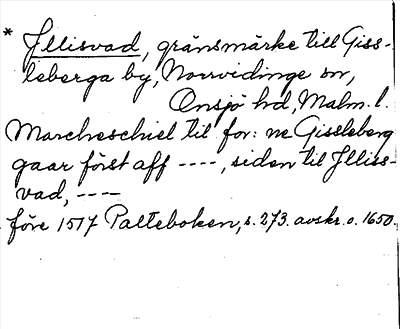 * Jllisvad, gränsmärke till Giss-
leberga by, Norrvidinge sn,
Onsjö hd, Malm. l.
Marcheschiel til for: ne Gissleberg
gaar först aff ----, siden til Jlliss-
vad, ----
före 1517 Palteboken, s. 273. avskr. o. 1650.